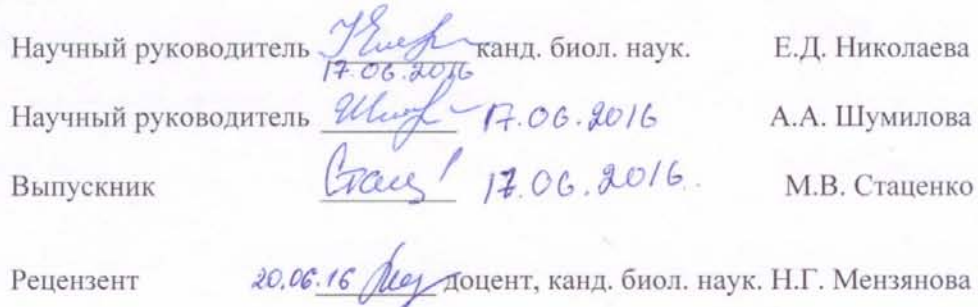 Научный руководитель канд. биол. наук. Е.Д. Николаева
17.06.2016
Научный руководитель 17.06.2016 А.А. Шумилова
Выпускник Стац 17.06.2016. М.В. Стаценко
Рецензент 20.06.16 доцент, канд. биол. наук. Н.Г. Мензянова